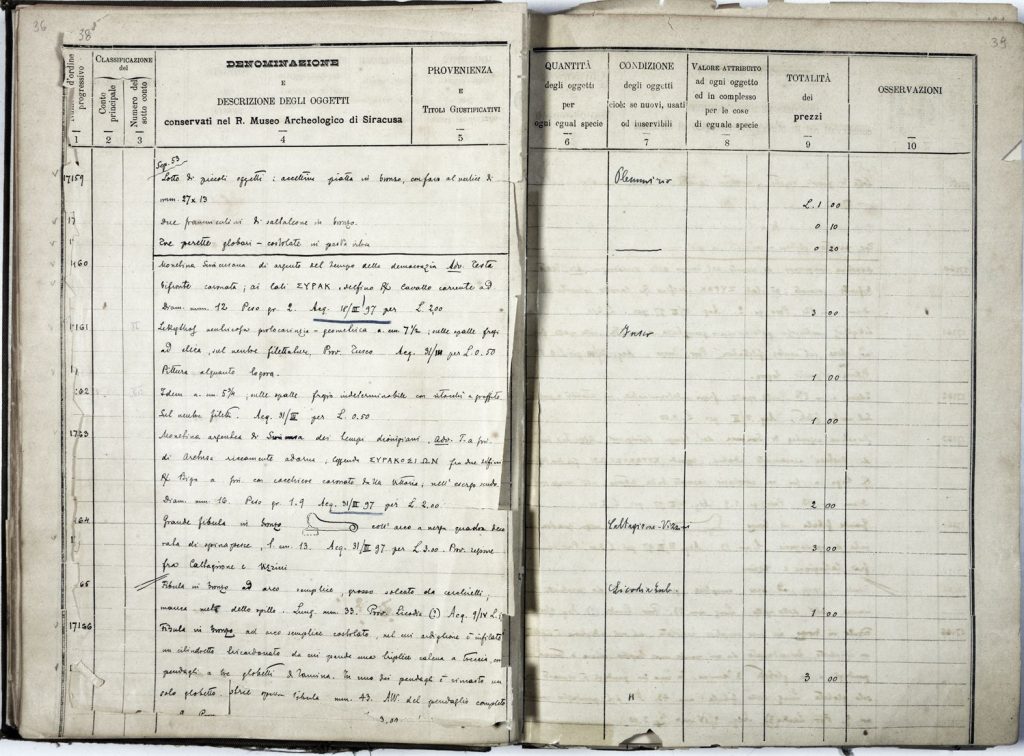 36
38
N. d'ordine progressivo
CLASSIFICAZIONE del
Conto principale
Numero del sotto conto
DENOMINAZIONE
E
DESCRIZIONE DEGLI OGGETTI
conservati nel R. Museo Archeologico di Siracusa
PROVENIENZA
E
TITOLI GIUSTIFICATIVI
1 2 3 4 5
Sep. 53
17159 Lotto di piccoli oggetti: accettina piatta in bronzo, con foro al vertice di
mm. 27 x 13
due frammentini di saltaleone in bronzo.
Tre perette globari - costolate in pasta vitrea
160 Monetina Siracusana di argento del tempo della democrazia Adv. Testa
bifronte coronata; ai lati ΣΥΡΑΚ, delfino Rx Cavallo corrente ad
Diam. mm. 12 Peso gr. 2. Acq. 18/III 97 per L. 2,00
17161 Lekythos protocorinzia - geometrica a. cm. 7 1/2; sulle spalle fregi
ad elica, sul ventre filettature. Prov. Fusco Acq. 31/III per L. 0.50
Pittura alquanto logora.
162 Idem a. cm. 5 3/4; sulle spalle fregio indeterminabile con ritocchi a graffito
sul ventre filetti. Acq. 31/III per L. 0.50
1763 Monetina argentea di Siracusa dei tempi dionigiani. Adv. T. a
di Aretusa riccamente adorna; leggenda ΣΥΡΑΚΟΣΙΩΝ fra due delfini
Rx Biga a con cocchiere coronato dalla Vittoria; nell'esergo
Diam. mm. 16. Peso gr. 1.9 Acq. 31/III 97 per L. 2.00
64 Grande fibula in bronzo coll'arco a verga quadra deco
rata di spinapesce, l. cm. 13. Acq. 31/III 97 per L. 3.00. Prov. regione
fra Caltagirone e Vizzini
65 Fibula in bronzo ad arco semplice, grosso solcato da cerchielli;
manca metà dello spillo. Lung. mm. 33. Prov. Licodia (?) Acq. 9/IV L. 1
17166 Fibula in bronzo, ad arco semplice costolato, nel cui ardiglione è infilato
un cilindretto bicordonato da cui pende una triplice catena a treccia, con
pendagli a tre globetti di lamina. In uno dei pendagli è rimasto un
solo globetto. fibula mm. 43. Alt. del pendaglio completo
3.00
39
QUANTITÀ
degli oggetti
per
ogni egual specie
CONDIZIONE
degli oggetti
cioè: se nuovi, usati
od inservibili
VALORE ATTRIBUITO
ad ogni oggetto
ed in complesso
per le cose
di eguale specie
TOTALITÀ
dei
prezzi
OSSERVAZIONI
6 7 8 9 10
Plemmirio
L. 1 00
0 10
0 20
3 00
Fusco
1 00
1 00
2 00
Caltagirone-Vizzini
3 00
Licodia Eub.
1 00
3 00
"